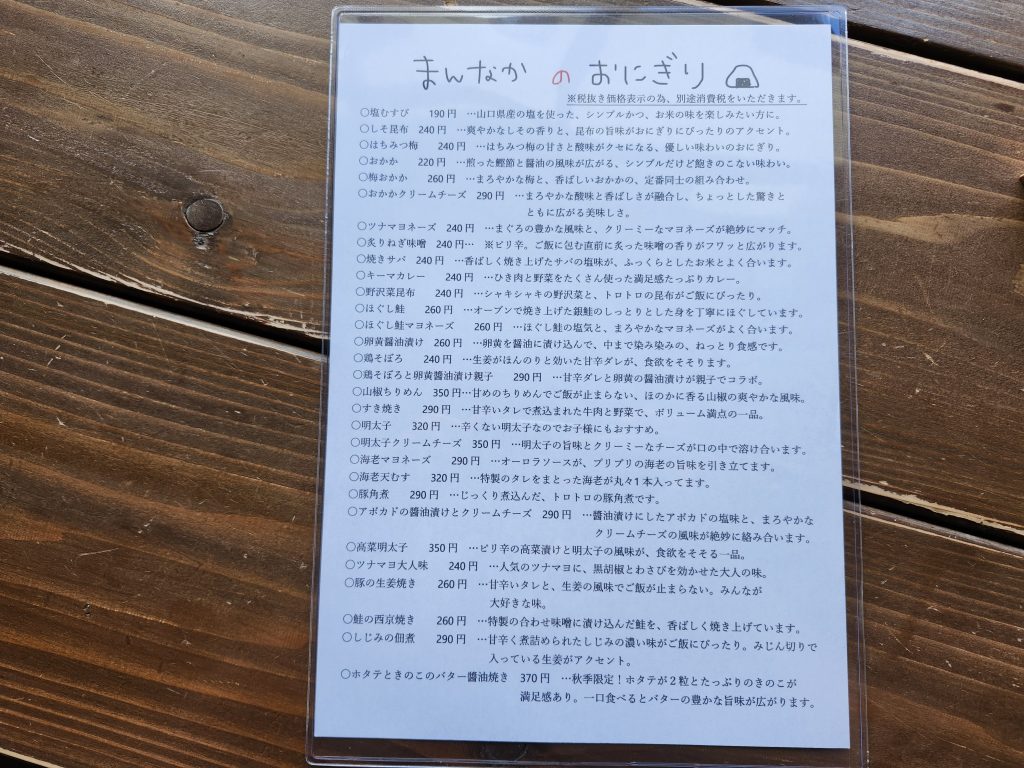 まんなか の おにぎり
※税抜き価格表示の為、別途消費税をいただきます。
○塩むすび 190円 …山口県産の塩を使った、シンプルかつ、お米の味を楽しみたい方に。
○しそ昆布 240円 …爽やかなしその香りと、昆布の旨味がおにぎりにぴったりのアクセント。
○はちみつ梅 240円 …はちみつ梅の甘さと酸味がクセになる、優しい味わいのおにぎり。
○おかか 220円 …煎った鰹節と醤油の風味が広がる、シンプルだけど飽きのこない味わい。
○梅おかか 260円 …まろやかな梅と、香ばしいおかかの、定番同士の組み合わせ。
○おかかクリームチーズ 290円 …まろやかな酸味と香ばしさが融合し、ちょっとした驚きと
ともに広がる美味しさ。
○ツナマヨネーズ 240円 …まぐろの豊かな風味と、クリーミーなマヨネーズが絶妙にマッチ。
○炙りねぎ味噌 240円… ※ピリ辛。ご飯に包む直前に炙った味噌の香りがフワッと広がります。
○焼きサバ 240円 …香ばしく焼き上げたサバの塩味が、ふっくらとしたお米とよく合います。
○キーマカレー 240円 …ひき肉と野菜をたくさん使った満足感たっぷりカレー。
○野沢菜昆布 240円 …シャキシャキの野沢菜と、トロトロの昆布がご飯にぴったり。
○ほぐし鮭 260円 …オーブンで焼き上げた銀鮭のしっとりとした身を丁寧にほぐしています。
○ほぐし鮭マヨネーズ 260円 …ほぐし鮭の塩気と、まろやかなマヨネーズがよく合います。
○卵黄醤油漬け 260円 …卵黄を醤油に漬け込んで、中まで染み染みの、ねっとり食感です。
○鶏そぼろ 240円 …生姜がほんのりと効いた甘辛ダレが、食欲をそそります。
○鶏そぼろと卵黄醤油漬け親子 290円 …甘辛ダレと卵黄の醤油漬けが親子でコラボ。
○山椒ちりめん 350円…甘めのちりめんでご飯が止まらない、ほのかに香る山椒の爽やかな風味。
○すき焼き 290円 …甘辛いタレで煮込まれた牛肉と野菜で、ボリューム満点の一品。
○明太子 320円 …辛くない明太子なのでお子様にもおすすめ。
○明太子クリームチーズ 350円 …明太子の旨味とクリーミーなチーズが口の中で溶け合います。
○海老マヨネーズ 290円 …オーロラソースが、プリプリの海老の旨味を引き立てます。
○海老天むす 320円 …特製のタレをまとった海老が丸々1本入ってます。
○豚角煮 290円 …じっくり煮込んだ、トロトロの豚角煮です。
○アボカドの醤油漬けとクリームチーズ 290円 …醤油漬けにしたアボカドの塩味と、まろやかな
クリームチーズの風味が絶妙に絡み合います。
○高菜明太子 350円 …ピリ辛の高菜漬けと明太子の風味が、食欲をそそる一品。
○ツナマヨ大人味 240円 …人気のツナマヨに、黒胡椒とわさびを効かせた大人の味。
○豚の生姜焼き 260円 …甘辛いタレと、生姜の風味でご飯が止まらない。みんなが
大好きな味。
○鮭の西京焼き 260円 …特製の合わせ味噌に漬け込んだ鮭を、香ばしく焼き上げています。
○しじみの佃煮 290円 …甘辛く煮詰められたしじみの濃い味がご飯にぴったり。みじん切りで
入っている生姜がアクセント。
○ホタテときのこのバター醤油焼き 370円 …秋季限定！ホタテが２粒とたっぷりのきのこが
満足感あり。一口食べるとバターの豊かな旨味が広がります。